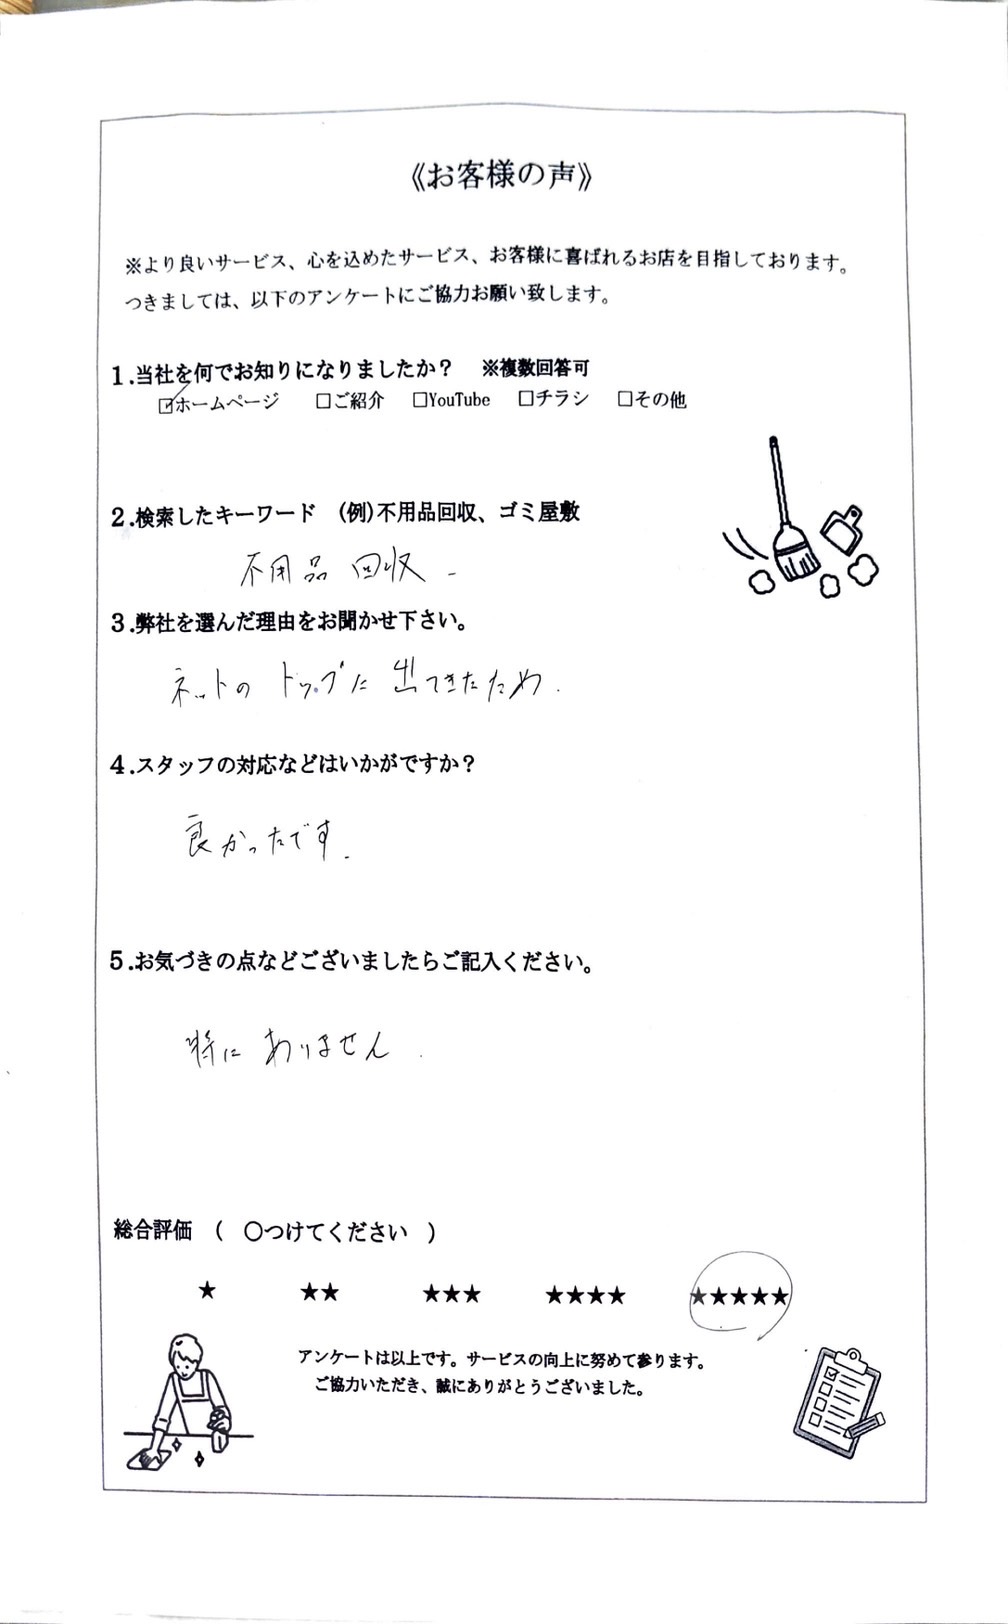 《お客様の声》
※より良いサービス、心を込めたサービス、お客様に喜ばれるお店を目指しております。
つきましては、以下のアンケートにご協力お願い致します。
1.当社を何でお知りになりましたか？　※複数回答可
☑ホームページ　□ご紹介　□YouTube　□チラシ　□その他
2.検索したキーワード　(例)不用品回収、ゴミ屋敷
不用品 回収
3.弊社を選んだ理由をお聞かせ下さい。
ネットの トップに 出てきたため.
4.スタッフの対応などはいかがですか？
良かったです.
5.お気づきの点などございましたらご記入ください。
特に ありません.
総合評価　(　〇つけてください　)
★　★★　★★★　★★★★　★★★★★
アンケートは以上です。サービスの向上に努めて参ります。
ご協力いただき、誠にありがとうございました。